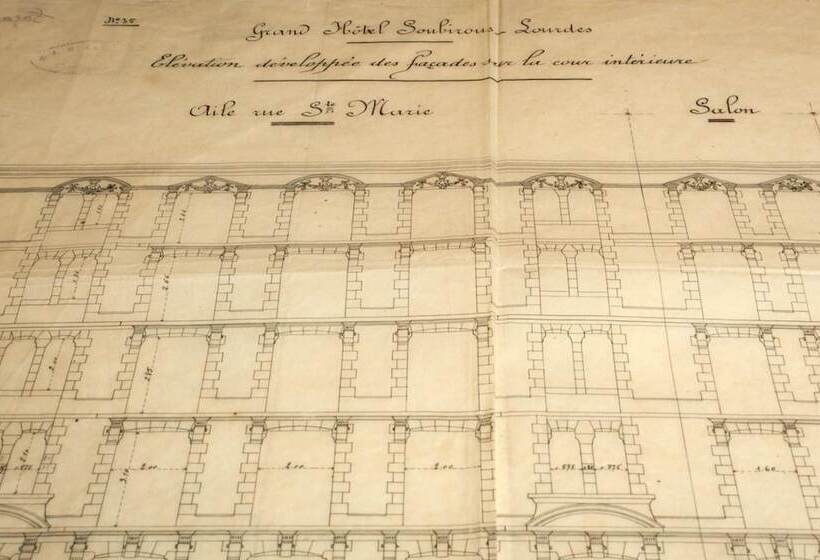 N° 35
Grand Hôtel Soubirous - Lourdes
Elévation développée des façades sur la cour intérieure
Aile rue Ste Marie
Salon
2.66
2.00
2.00
2.00
1.60